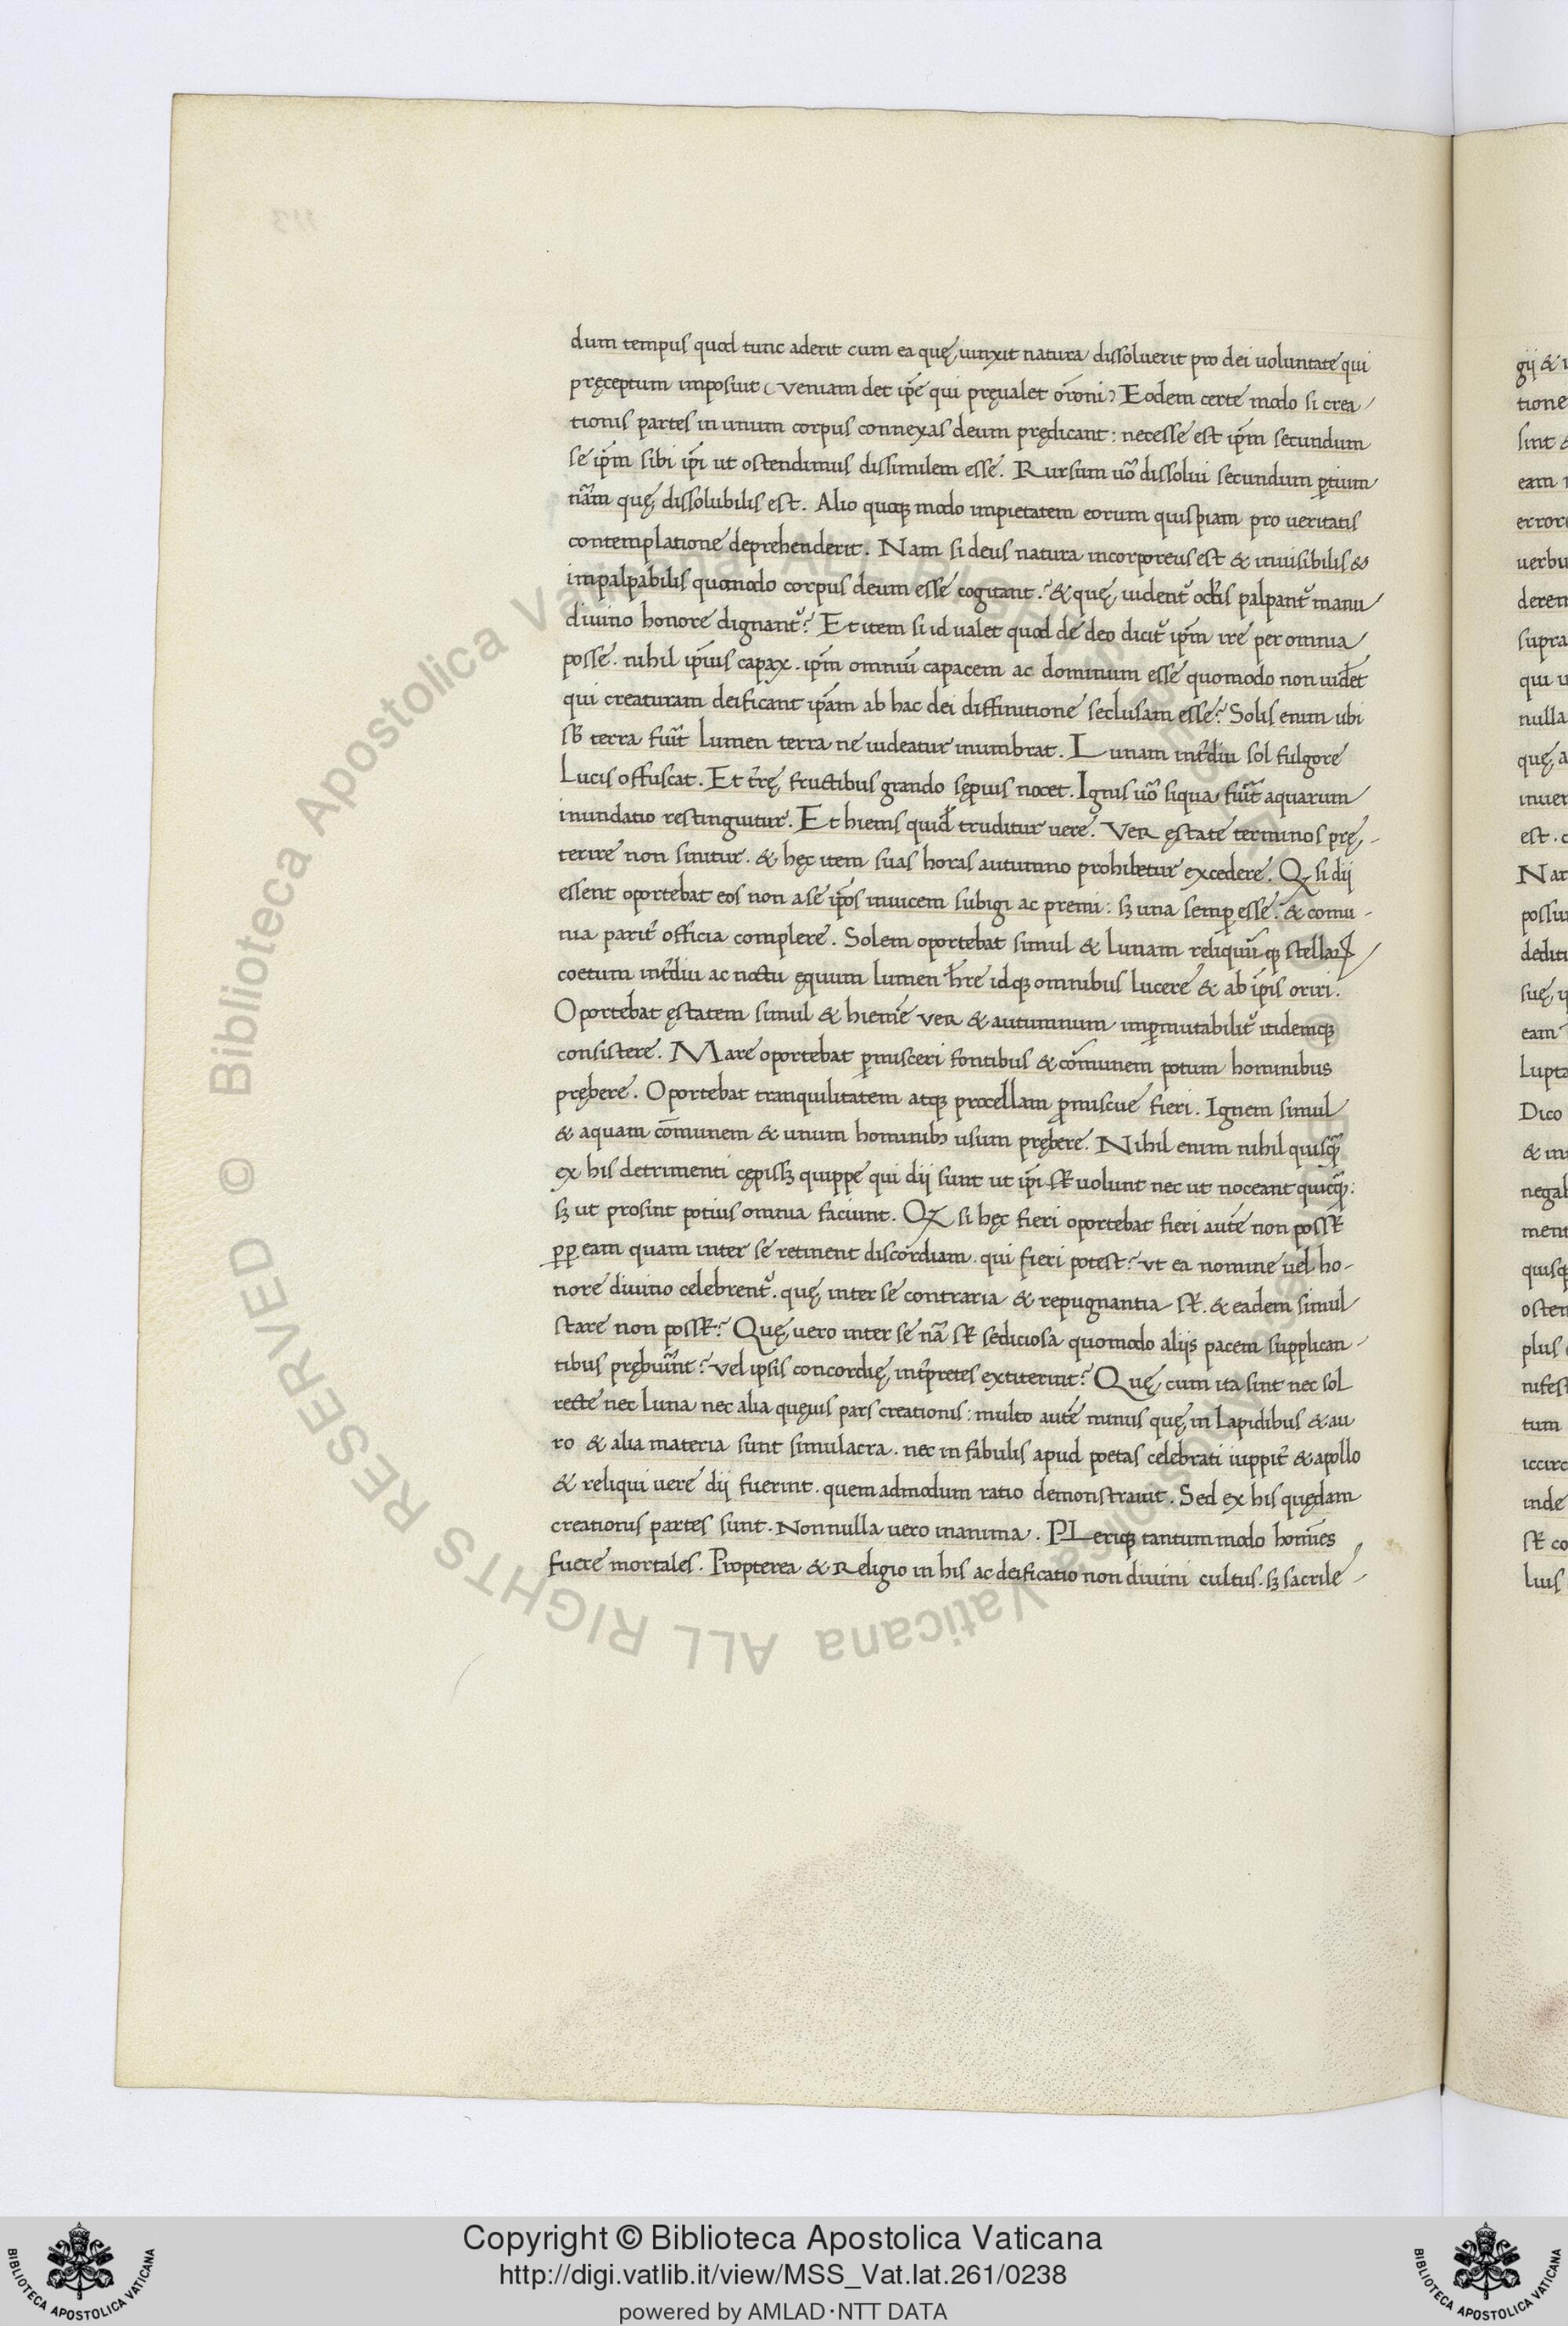 dum tempus quod tunc aderit cum ea quę uinxit natura dissoluerit pro dei uoluntate qui
pręceptum imposuit (veniam det ip̄e qui pręualet or̄oni) Eodem certe modo si crea/
tionis partes in unum corpus connexas deum prędicant: necesse est ip̄m secundum
se ip̄m sibi ip̄i ut ostendimus dissimilem esse. Rursum uō dissolui secundum ꝑtium
nām quę dissolubilis est. Alio quoqꝫ modo impietatem eorum quispiam pro ueritatis
contemplatione deprehenderit. Nam si deus natura incorporeus est & inuisibilis &
impalpabilis quomodo corpus deum esse cogitant? & quę uident᷑ oclis palpant᷑ manu
diuino honore dignant᷑? Et item si id ualet quod de deo dicit᷑ ip̄m ire per omnia
posse. nihil ip̄ius capax. ip̄m omniū capacem ac dominum esse quomodo non uidet
qui creaturam deificant ip̄am ab hac dei diffinitione seclusam esse? Solis enim ubi
sƀ terra fuīt lumen terra ne uideatur inumbrat. Lunam int̄diu sol fulgore
lucis offuscat. Et t̄rę fructibus grando sępius nocet. Ignis uō siqua fuīt aquarum
inundatio restinguitur. Et hiems quid̄ truditur uere. Ver ęstate terminos prę-
terire non sinitur. & hęc item suas horas autumno prohibetur excedere. Qꝫ si dij
essent oportebat eos non a se ip̄os inuicem subigi ac premi: sꝫ una semꝑ esse. & comu-
nia parit᷑ officia complere. Solem oportebat simul & lunam reliquūqꝫ stellaꝝ
coetum int̄diu ac noctu ęquum lumen h̄re idqꝫ omnibus lucere & ab ip̄is oriri.
Oportebat ęstatem simul & hiemē ver & autumnum imꝑmutabilit᷑ itidemqꝫ
consistere. Mare oportebat ꝑmisceri fontibus & cōmunem potum hominibus
prębere. Oportebat tranquilitatem atqꝫ procellam ꝓmiscue fieri. Ignem simul
& aquam cōmunem & unum hominibꝫ usum prębere. Nihil enim nihil quisqꝫ̄
ex his detrimenti cępissꝫ quippe qui dij sunt ut ip̄i st̄ uolunt nec ut noceant quicqꝫ̄:
sꝫ ut prosint potius omnia faciunt. Qꝫ si hęc fieri oportebat fieri autē non posst̄
ꝓꝑ eam quam inter se retinent discordiam. qui fieri potest? vt ea nomine uel ho-
nore diuino celebrent᷑. quę inter se contraria & repugnantia st̄. & eadem simul
stare non posst̄? Quę uero inter se nā st̄ sediciosa quomodo aliis pacem supplican-
tibus prębuīnt? vel ipsis concordię int̄pretes extiterint? Quę cum ita sint nec sol
recte nec luna nec alia quęuis pars creationis: multo autē minus quę in lapidibus & au
ro & alia materia sunt simulacra. nec in fabulis apud poetas celebrati iuppit᷑ & apollo
& reliqui uere dij fuerint. quemadmodum ratio demonstrauit. Sed ex his quędam
creationis partes sunt. Nonnulla uero inanima. PLeriqꝫ tantum modo homīes
fuere mortales. Propterea & Religio in his ac deificatio non diuini cultus. sꝫ sacrile-
Copyright © Biblioteca Apostolica Vaticana
http://digi.vatlib.it/view/MSS_Vat.lat.261/0238
powered by AMLAD·NTT DATA